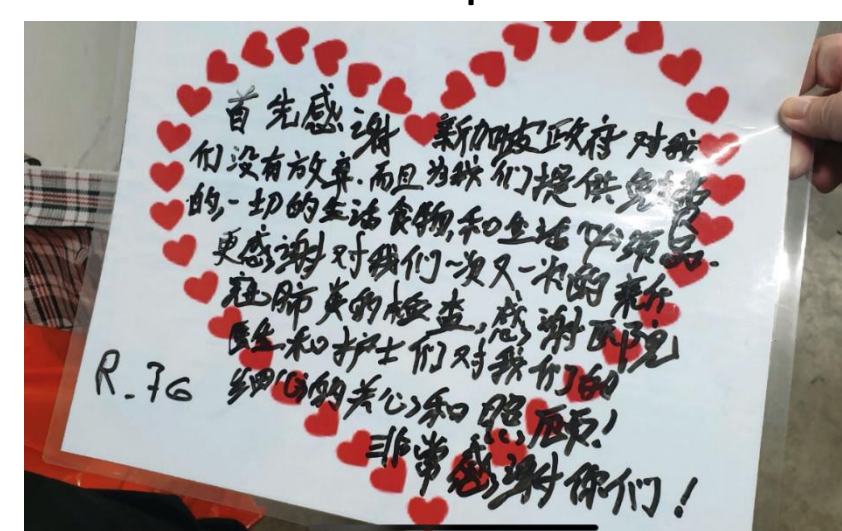 首先感谢 新加坡政府对我
们没有放弃.而且为我们提供免费
的,一切的生活食物,和生活必须品.
更感谢对我们一次又一次的新
冠肺炎的检查,感谢医院
医生和护士们对我们的
细心的关心和照顾!
非常感谢你们!
R-76